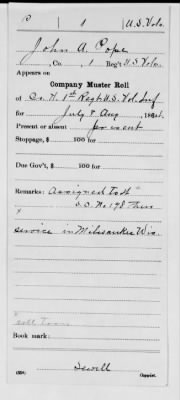 P | 1 | U.S. Vols.
John A. Pope
, Co. 1 Reg't U.S. Vols.
Appears on
Company Muster Roll
of Co. H. 1st Regt U.S. Vol. Inf
for July & Aug, 186
Present or absent present
Stoppage, $ 100 for
Due Gov't, $ 100 for
Remarks: Assigned to H
S.O. No 198
service in Milwaukee Wis.
Book mark:
Sewell
(358) Copyist.